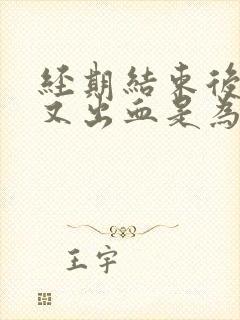 經期結束後
又出血是為
王宇